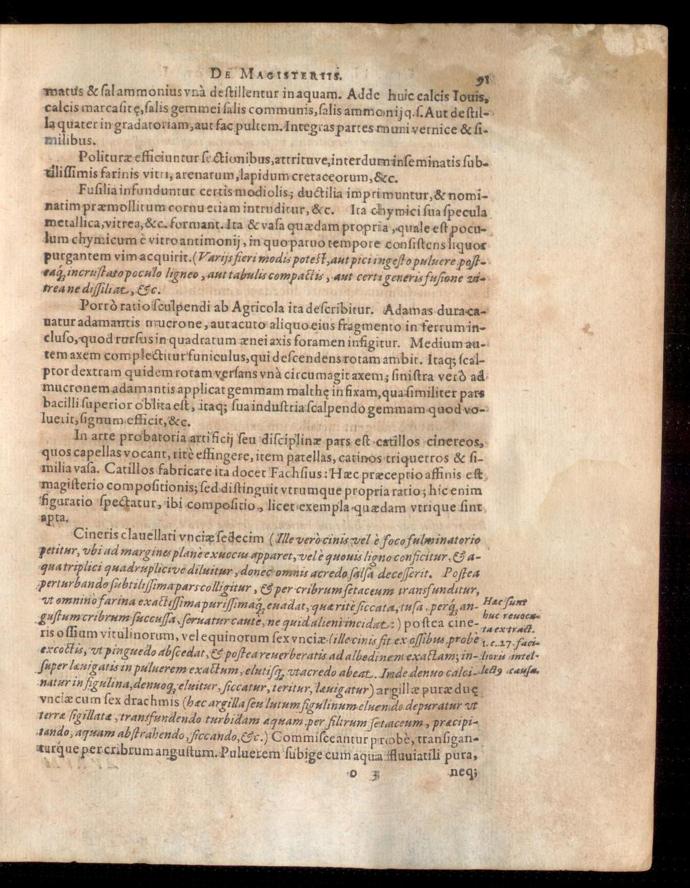 DE MAGISTERIIS. 91
matus & sal ammonius vnà destillentur in aquam. Adde huic calcis Iouis,
calcis marcasitę, salis gemmei salis communis, salis ammonij q. s. Aut destil-
la quater in gradatoriam, aut fac pultem. Integras partes muni vernice & si-
milibus.
Polituræ efficiuntur sectionibus, attrituve, interdum inseminatis sub-
tilissimis farinis vitri, arenatum, lapidum cretaceorum, &c.
Fusilia infunduntur certis modiolis; ductilia imprimuntur, & nomi-
natim præmollitum cornu etiam intruditur, &c. Ita chymici sua specula
metallica, vitrea, &c. formant. Ita & vasa quædam propria, quale est pocu-
lum chymicum è vitro antimonij, in quo paruo tempore consistens liquor
purgantem vim acquirit. (Varijs fieri modis potest, aut pici ingesto puluere, post-
eaq́, incrustato poculo ligneo, aut tabulis compactis, aut certi generis fusione vi-
trea ne dissiliat, &c.
Porrò ratio sculpendi ab Agricola ita describitur. Adamas dura ca-
uatur adamantis mucrone, aut acuto aliquo eius fragmento in ferrum in-
cluso, quod rursus in quadratum ænei axis foramen infigitur. Medium au-
tem axem complectitur funiculus, qui descendens rotam ambit. Itaq; scal-
ptor dextram quidem rotam versans vnà circumagit axem; sinistra verò ad
mucronem adamantis applicat gemmam malthę infixam, qua similiter pars
bacilli superior oblita est, itaq; sua industria scalpendo gemmam quod vo-
luerit, signum efficit, &c.
In arte probatoria artificij seu disciplinæ pars est catillos cinereos,
quos capellas vocant, ritè effingere, item patellas, catinos triquetros & si-
milia vasa. Catillos fabricare ita docet Fachsius: Hæc præceptio affinis est
magisterio compositionis; sed distinguit vtrumque propria ratio; hic enim
figuratio spectatur, ibi compositio, licet exempla quædam vtrique sint
apta.
Cineris clauellati vnciæ sedecim (Ille verò cinis vel è foco fulminatorio
petitur, vbi ad margines plane exuccus apparet, vel è quouis ligno conficitur, & a-
qua triplici quadruplicive diluitur, donec omnis acredo salsa decesserit. Postea
perturbando subtilissima pars colligitur, & per cribrum setaceum transfunditur,
vt omnino farina exactissima purissimaq́, euadat, quæ ritè siccata, tusa, perq́, an-
gustum cribrum succussa, seruatur caute, ne quid alieni incidat:) postea cine-
ris ossium vitulinorum, vel equinorum sex vnciæ (ille cinis fit ex ossibus probe
excoctis, vt pinguedo abscedat, & postea reuerberatis ad albedinem exactam; in-
super læuigatis in puluerem exactum, elutisq́, vt acredo abeat. Inde denuo calci-
natur in figulina, denuoq́, eluitur, siccatur, teritur, læuigatur) argillæ puræ duę
vnciæ cum sex drachmis (hæc argilla seu lutum figulinum eluendo depuratur vt
terræ sigillatæ, transfundendo turbidam aquam per filtrum setaceum, præcipi-
tando, aquam abstrahendo, siccando, &c.) Commisceantur probè, transigan-
turque per cribrum angustum. Puluerem subige cum aqua fluuiatili pura,
Hæc sunt
huc reuoca-
ta ex tract.
1. c. 27. faci-
lioris intel-
lectꝰ causa.
O 3 neq;